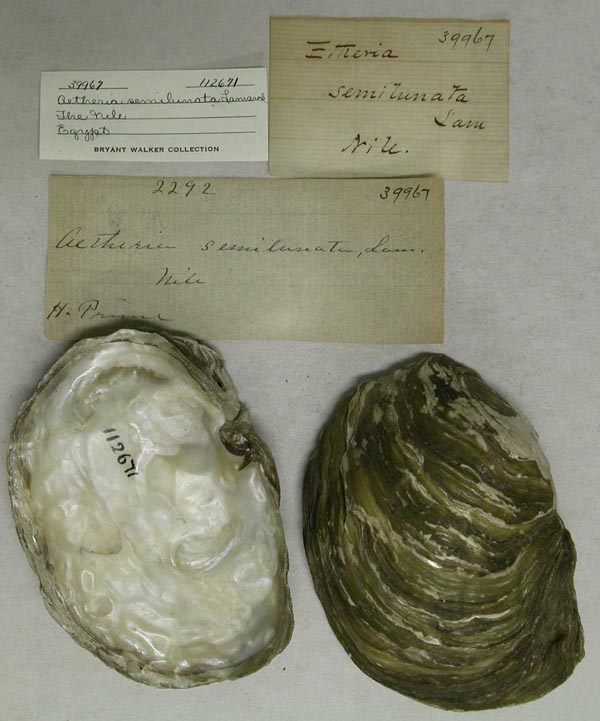 39967 112671
Aetheria semilunata Lamarck
The Nile
Egypt
BRYANT WALKER COLLECTION
39967
Etheria
semilunata
Lam
Nile.
2292 39967
Aetheria semilunata, Lam.
Nile
H. Prime
112671